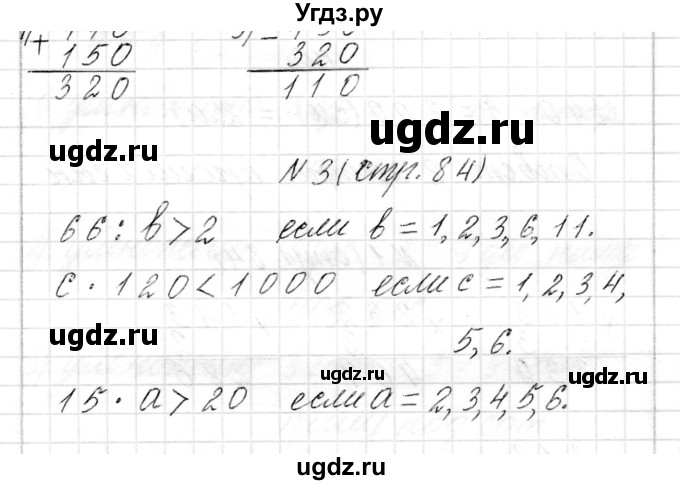 Угдз.ру
+ 150 320
320 110
ugdz.ru ugdz.ru
N 3 (стр. 84)
66 : b > 2 если b = 1, 2, 3, 6, 11.
c · 120 < 1000 если c = 1, 2, 3, 4,
ugdz.ru 5, 6.
ugdz.ru ugdz.ru
15 · a > 20 если a = 2, 3, 4, 5, 6.
ugdz.ru